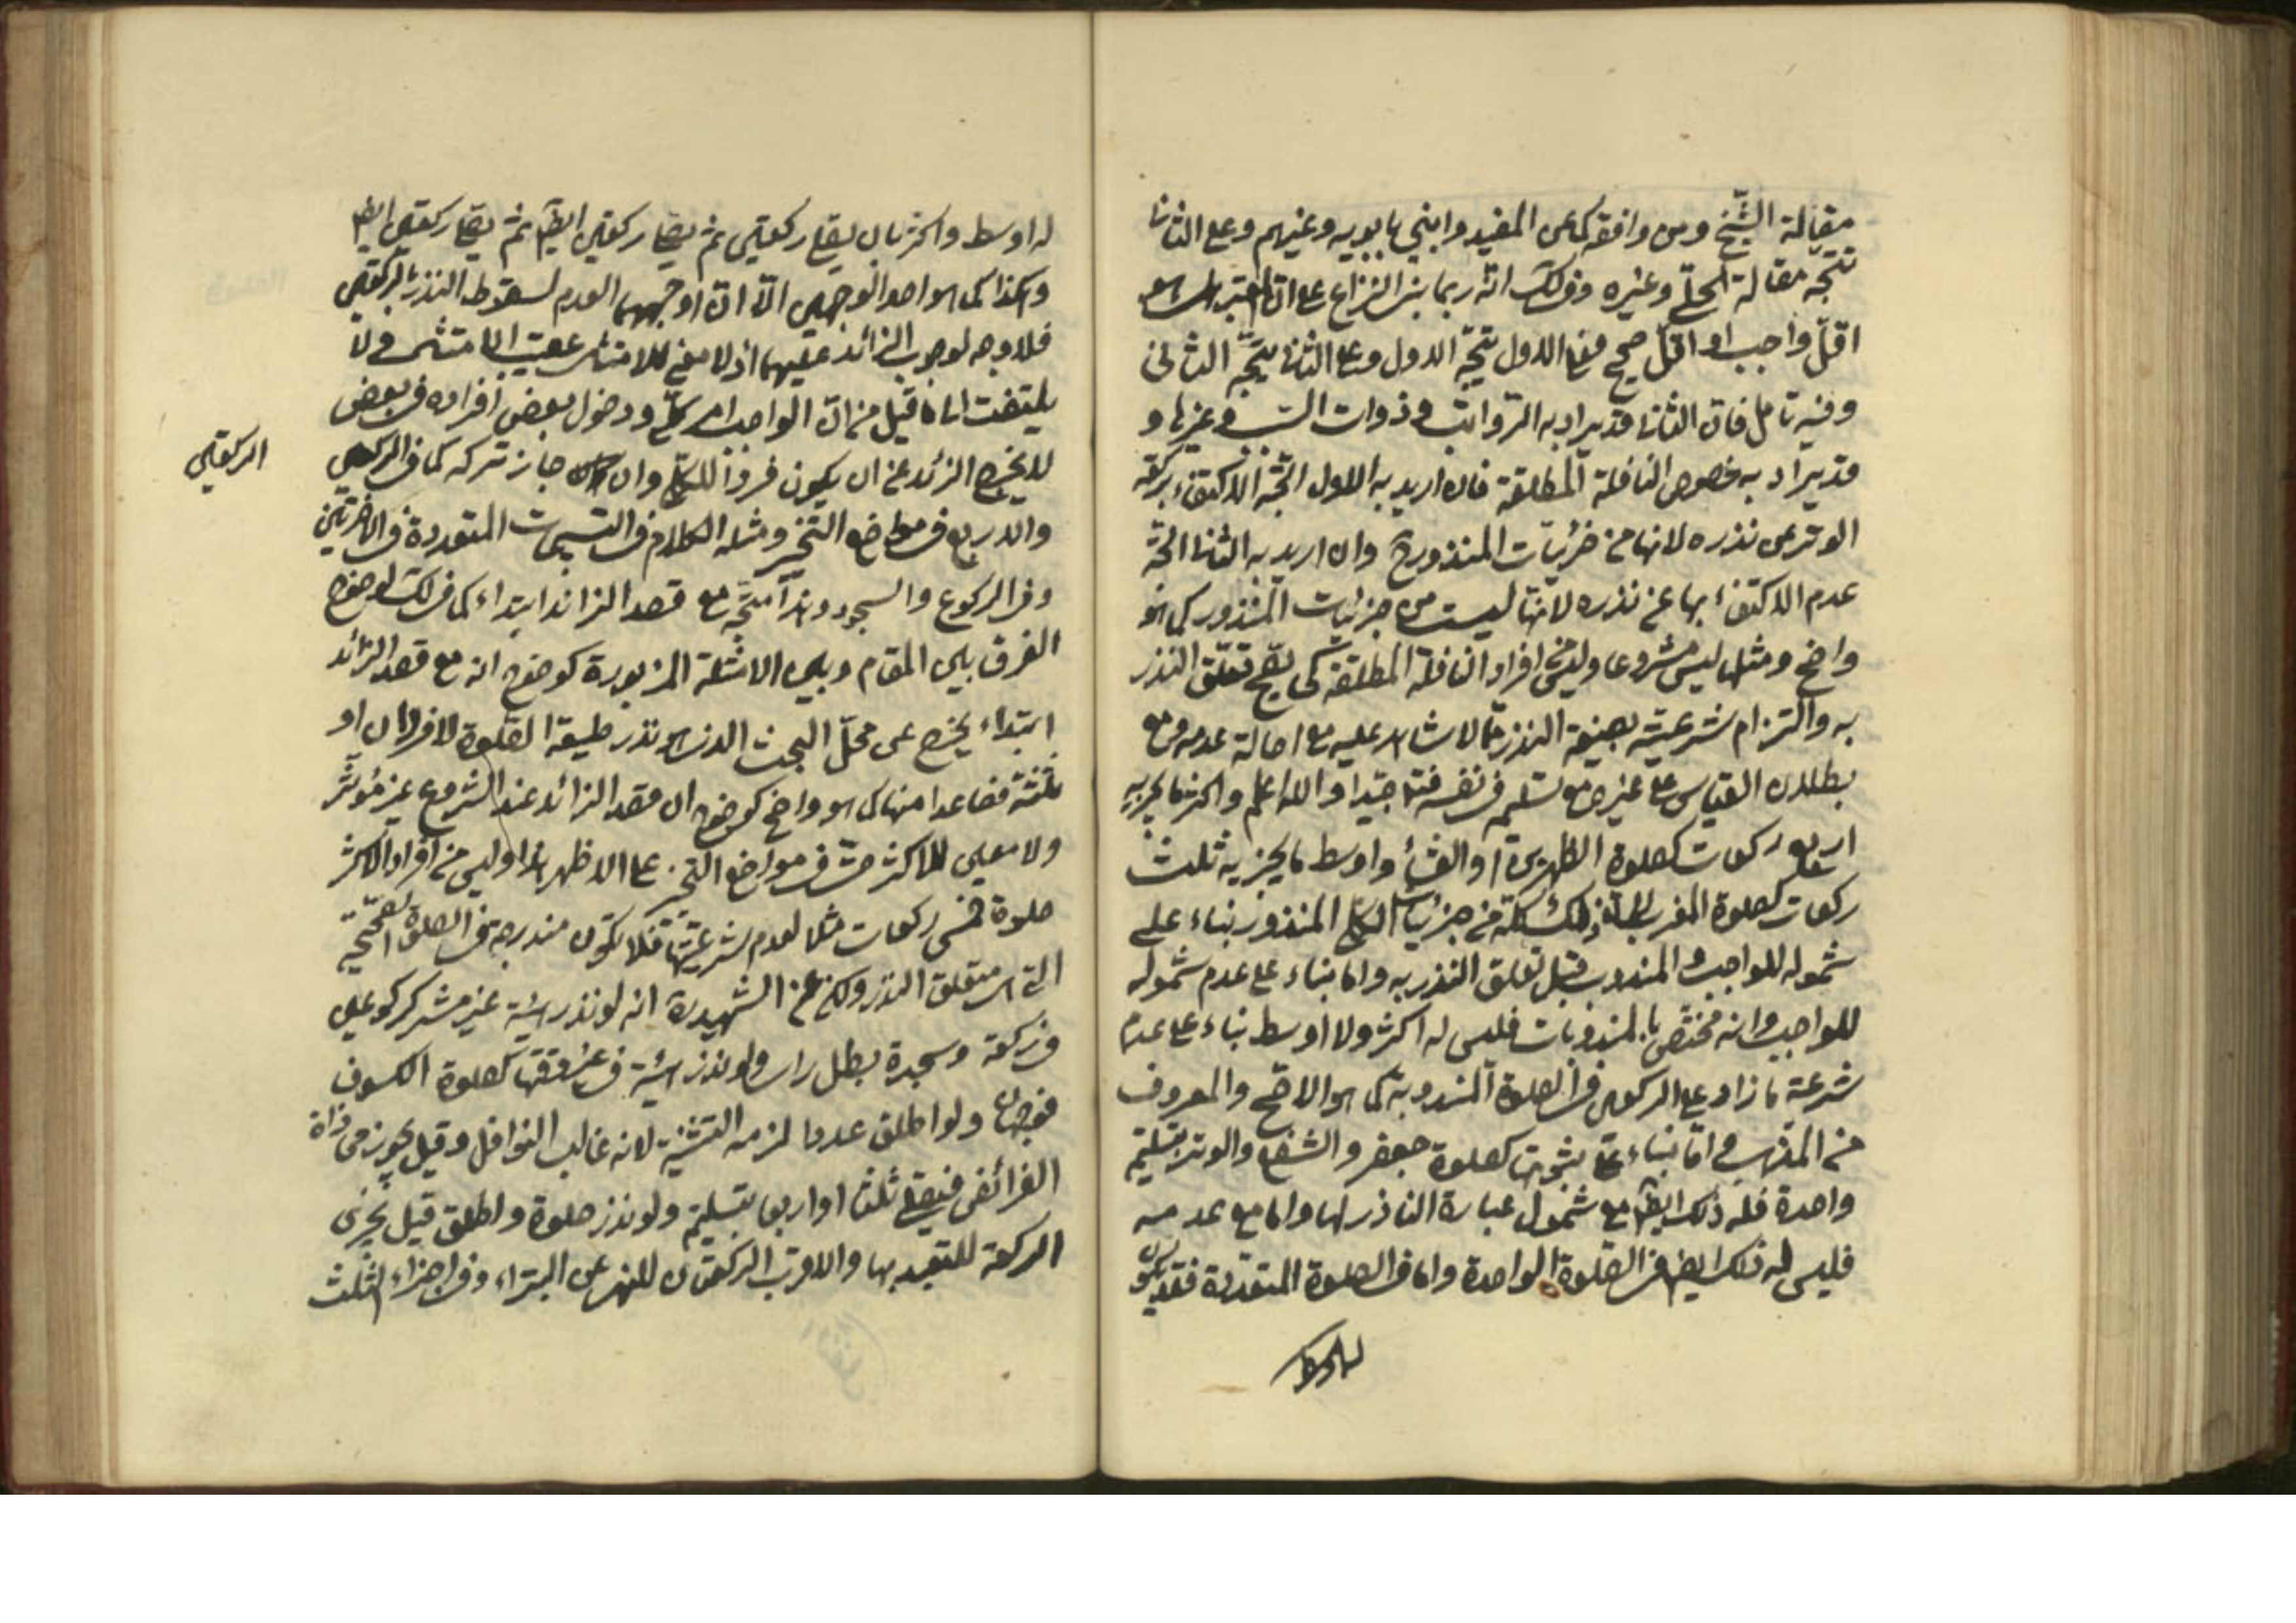 مقالة الشيخ ومن وافقه كما عن المفيد وابني بابويه وغيرهم وعلى الثاني
تتجه مقالة الحلي وغيره وفي لك انه ربما بني النزاع على ان المعتبر هل هو
اقل واجب او اقل صحيح فعلى الاول يتجه الاول وعلى الثاني يتجه الثاني
وفيه تامل فان الثاني قد يراد به الرواتب وذوات السبب وغيرها و
قد يراد به خصوص النافلة المطلقة فان اريد به الاول اتجه الاكتفاء بركعة
الوتر عن نذره لانها من جزئيات المنذورة وان اريد به الثاني اتجه
عدم الاكتفاء بها عن نذره لانها ليست من جزئيات المنذور كما هو
واضح ومثلها ليس مشروعا وليس من افراد النافلة المطلقة كي يصح تعلق النذر
به والتزام شرعيته بصيغة النذر مما لا شاهد عليه مع اصالة عدمه ومع
بطلان القياس على غيره مع تسلمه في نفسه فتامل جيدا والله اعلم واكثر ما يجزيه
اربع ركعات كصلوة الظهرين او العشاء واوسط ما يجزيه ثلث
ركعات كصلوة المغرب اذ ذلك كله من جزئيات الكلي المنذور بناء على
شموله للواجب والمندوب قبل تعلق النذر به واما بناء على عدم شموله
للواجب وانه مختص بالمندوبات فليس له اكثر ولا اوسط بناء على عدم
شرعية ما زاد على الركعتين في الصلوة المندوبة كما هو الاصح والمعروف
من المذهب واما بناء على ثبوتها كصلوة جعفر والشفع والوتر بتسليم
واحدة فله ذلك ايضا مع شمول عبارة الناذر لها واما مع عدمه
فليس له ذلك ايضا في الصلوة الواحدة واما في الصلوة المتعددة فقد يكون
له اوسط
له اوسط واكثر بان يصلي ركعتين ثم يصلي ركعتين ايضا ثم يصلي ركعتين ايضا
وهكذا كما هو احد الوجهين الا ان اوجههما العدم لسقوط النذر بالركعتين
فلا وجه لوجوب الزائد عليهما اذ لا معنى للامتثال عقيب الامتثال ولا
يلتفت الى ما قيل من ان الواجب امر كلي ودخول بعض افراده في بعض
لا يخرج الزائد عن ان يكون فردا للكلي وان جاز تركه كما في الركعتين
الركعتين
والاربع في مواضع التخيير ومثله الكلام في التسبيحات المتعددة في الاخيرتين
وفي الركوع والسجود وهذا متجه مع قصد الزائد ابتداء كما في لك لوضوح
الفرق بين المقام وبين الامثلة المزبورة كوضوح انه مع قصد الزائد
ابتداء يخرج عن محل البحث الذي هو نذر طبيعة الصلوة لا فردان او
ثلثة فصاعدا منها كما هو واضح كوضوح ان قصد الزائد عند الشروع غير مؤثر
ولا معين للاكثر حتى في مواضع التخيير على الاظهر هذا وليس من افراد الاكثر
صلوة خمس ركعات مثلا لعدم شرعيتها فلا تكون مندرجة في الصلوة الصحيحة
التي هي متعلق النذر ولكن عن الشهيد ره انه لو نذر هيئة غير مشر كركوعين
في ركعة وسجدة بطل راسا ولو نذر هيئة في غير وقتها كصلوة الكسوف
فوجهان ولو اطلق عددا لزمه التثنية لانه غالب النوافل وقيل يجوز محاذاة
الفرائض فيصلي ثلثا او اربعا بتسليم ولو نذر صلوة واطلق قيل تجزي
الركعة للتعبد بها والاقرب الركعتان للنهي عن البتراء وفي اجزاء الثلث